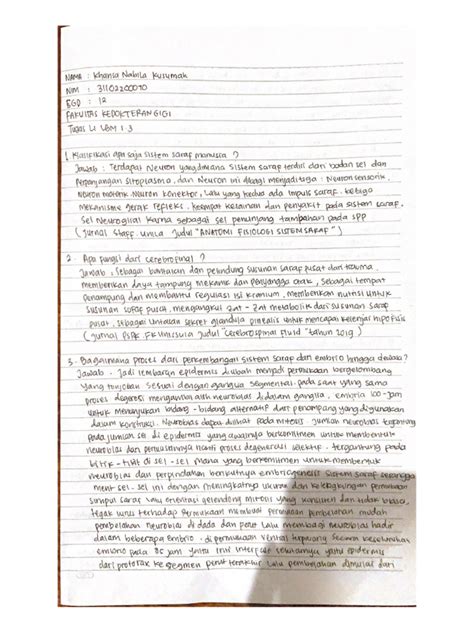 NAMA : Khansa Nabila Kusumah
NIM : 31102200090
BGD : 12
FAKULTAS KEDOKTERAN GIGI
Tugas LI LBM 1.3
1. Klasifikasi apa saja sistem saraf manusia ?
Jawab : Terdapat Neuron yang dimana sistem saraf terdiri dari badan sel dan
Perpanjangan sitoplasma, dan Neuron ini dibagi menjadi tiga : Neuron sensorik,
Neuron motorik, Neuron Konektor, Lalu yang kedua ada impuls saraf. ketiga
Mekanisme gerak refleks. keempat kelainan dan penyakit pada sistem saraf.
Sel Neuroglial karna sebagai sel penunjang tambahan pada SPP
( Jurnal Staff. unila Judul "ANATOMI FISIOLOGI SISTEM SARAF" )
2. Apa fungsi dari cerebrospinal ?
Jawab : sebagai bantalan dan pelindung susunan saraf pusat dari trauma,
memberikan daya tampung mekanik dan penyangga otak, sebagai tempat
penampung dan membantu regulasi isi kranium, memberikan nutrisi untuk
susunan saraf pusat, mengangkut zat - zat metabolit dari susunan saraf
pusat, sebagai lintasan sekret glandula pinealis untuk mencapai kelenjar hipofisis
( Jurnal PSPK FK Unassula Judul "Cerebrospinal Fluid" tahun 2019 )
3. Bagaimana proses dari perkembangan sistem saraf dari embrio hingga dewasa ?
Jawab : Jadi lembaran epidermis diubah menjadi permukaan bergelombang
yang tonjolan sesuai dengan ganglia segmental. pada saat yang sama
proses degenerasi neuroblas di dalam ganglia, embrio 100-jam
untuk menunjukan bidang - bidang alternatif dari penampang yang digunakan
dalam konstruksi. Neuroblas dapat dilihat pada mitosis. Jumlah neuroblas tergantung
pada jumlah sel di epidermis yang awalnya berkomitmen untuk membentuk
neuroblas dan pada sel - sel mana yang berkomitmen untuk membentuk
neuroblas dan perpindahan berikutnya embriogenesis sistem saraf
sel - sel ini dengan meningkatnya ukuran dan kelengkungan permukaan
lalu orientasi gelendong mitosis yang konsisten dan tidak biasa,
tegak lurus terhadap permukaan membuat pembelahan mudah
pembelahan neuroblas di dada dan perut lalu membagi neuroblas hadir
dalam beberapa embrio. di permukaan ventral secara keseluruhan
embrio pada 80 jam yaitu sekitarnya yaitu epidermis
dari protorax ke segmen perut terakhir lalu pembelahan dimulai dari